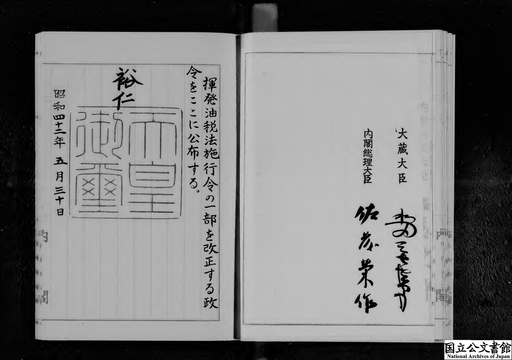 揮発油税法施行令の一部を改正する政
令をここに公布する。
裕仁
天皇
御璽
昭和四十三年五月三十日
大蔵大臣
内閣総理大臣
佐藤榮作
内閣
国立公文書館
National Archives of Japan